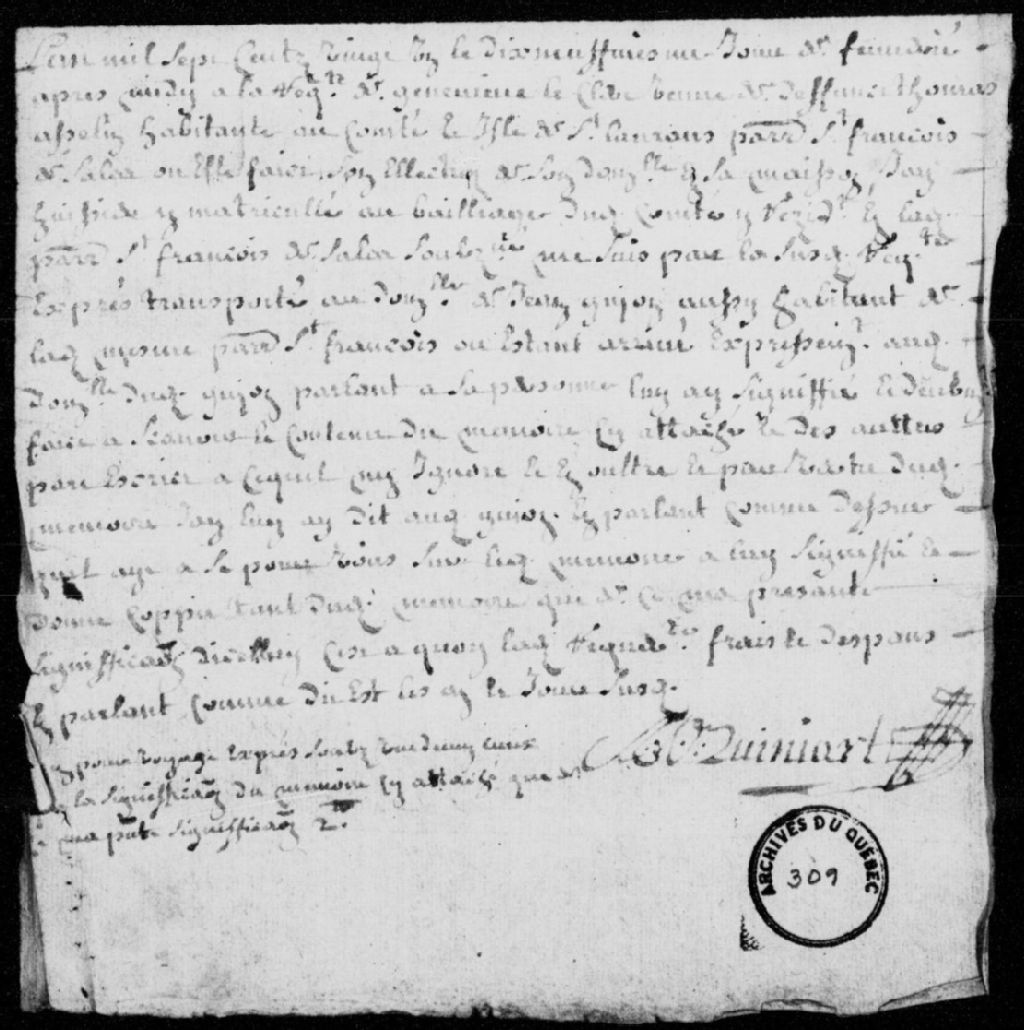 Lan mil sept Centz vingt un le dix neuffviesme Jour de
apres midy a la Reqte de genevieve le Clerc veuve de deffunct thomas
asselin habitante au Comté et Isle de St laurans parr St francois
de Salar ou Elle faict son Ellection de son domlle En sa maison Jay
huissier matriculle au bailliage dud. Comté y Rezidt En lad.
parr St francois de Salar me suis par la susd. Reqte
Exprés transporté au domlle de Jean guion aussy habitant de
lad mesme parr St francois ou Estant arrivé Expressemt aud.
domlle dud. guion parlant a sa personne luy ay signiffié
faict a scavoir le Contenu du memoire Cy attaché Et des auttres
part Escrict a cequil nen Ignore Et En oultre Et par vertu dud.
memoire Jay luy ay dit aud guion En parlant Comme dessus
quil aye a se pourvoir sur led. memoire a luy signiffié Et
donné Coppie tant dud. memoire que de ma presante
signifficaon dicelluy a quoy lad frais Et despans
En parlant Comme dit Est les an Et Jour susd.
pour voyage Exprés
la signifficaon du memoire Cy attaché que de
ma pnte signifficaon 2
Quiniart
ARCHIVES DU QUÉBEC
309